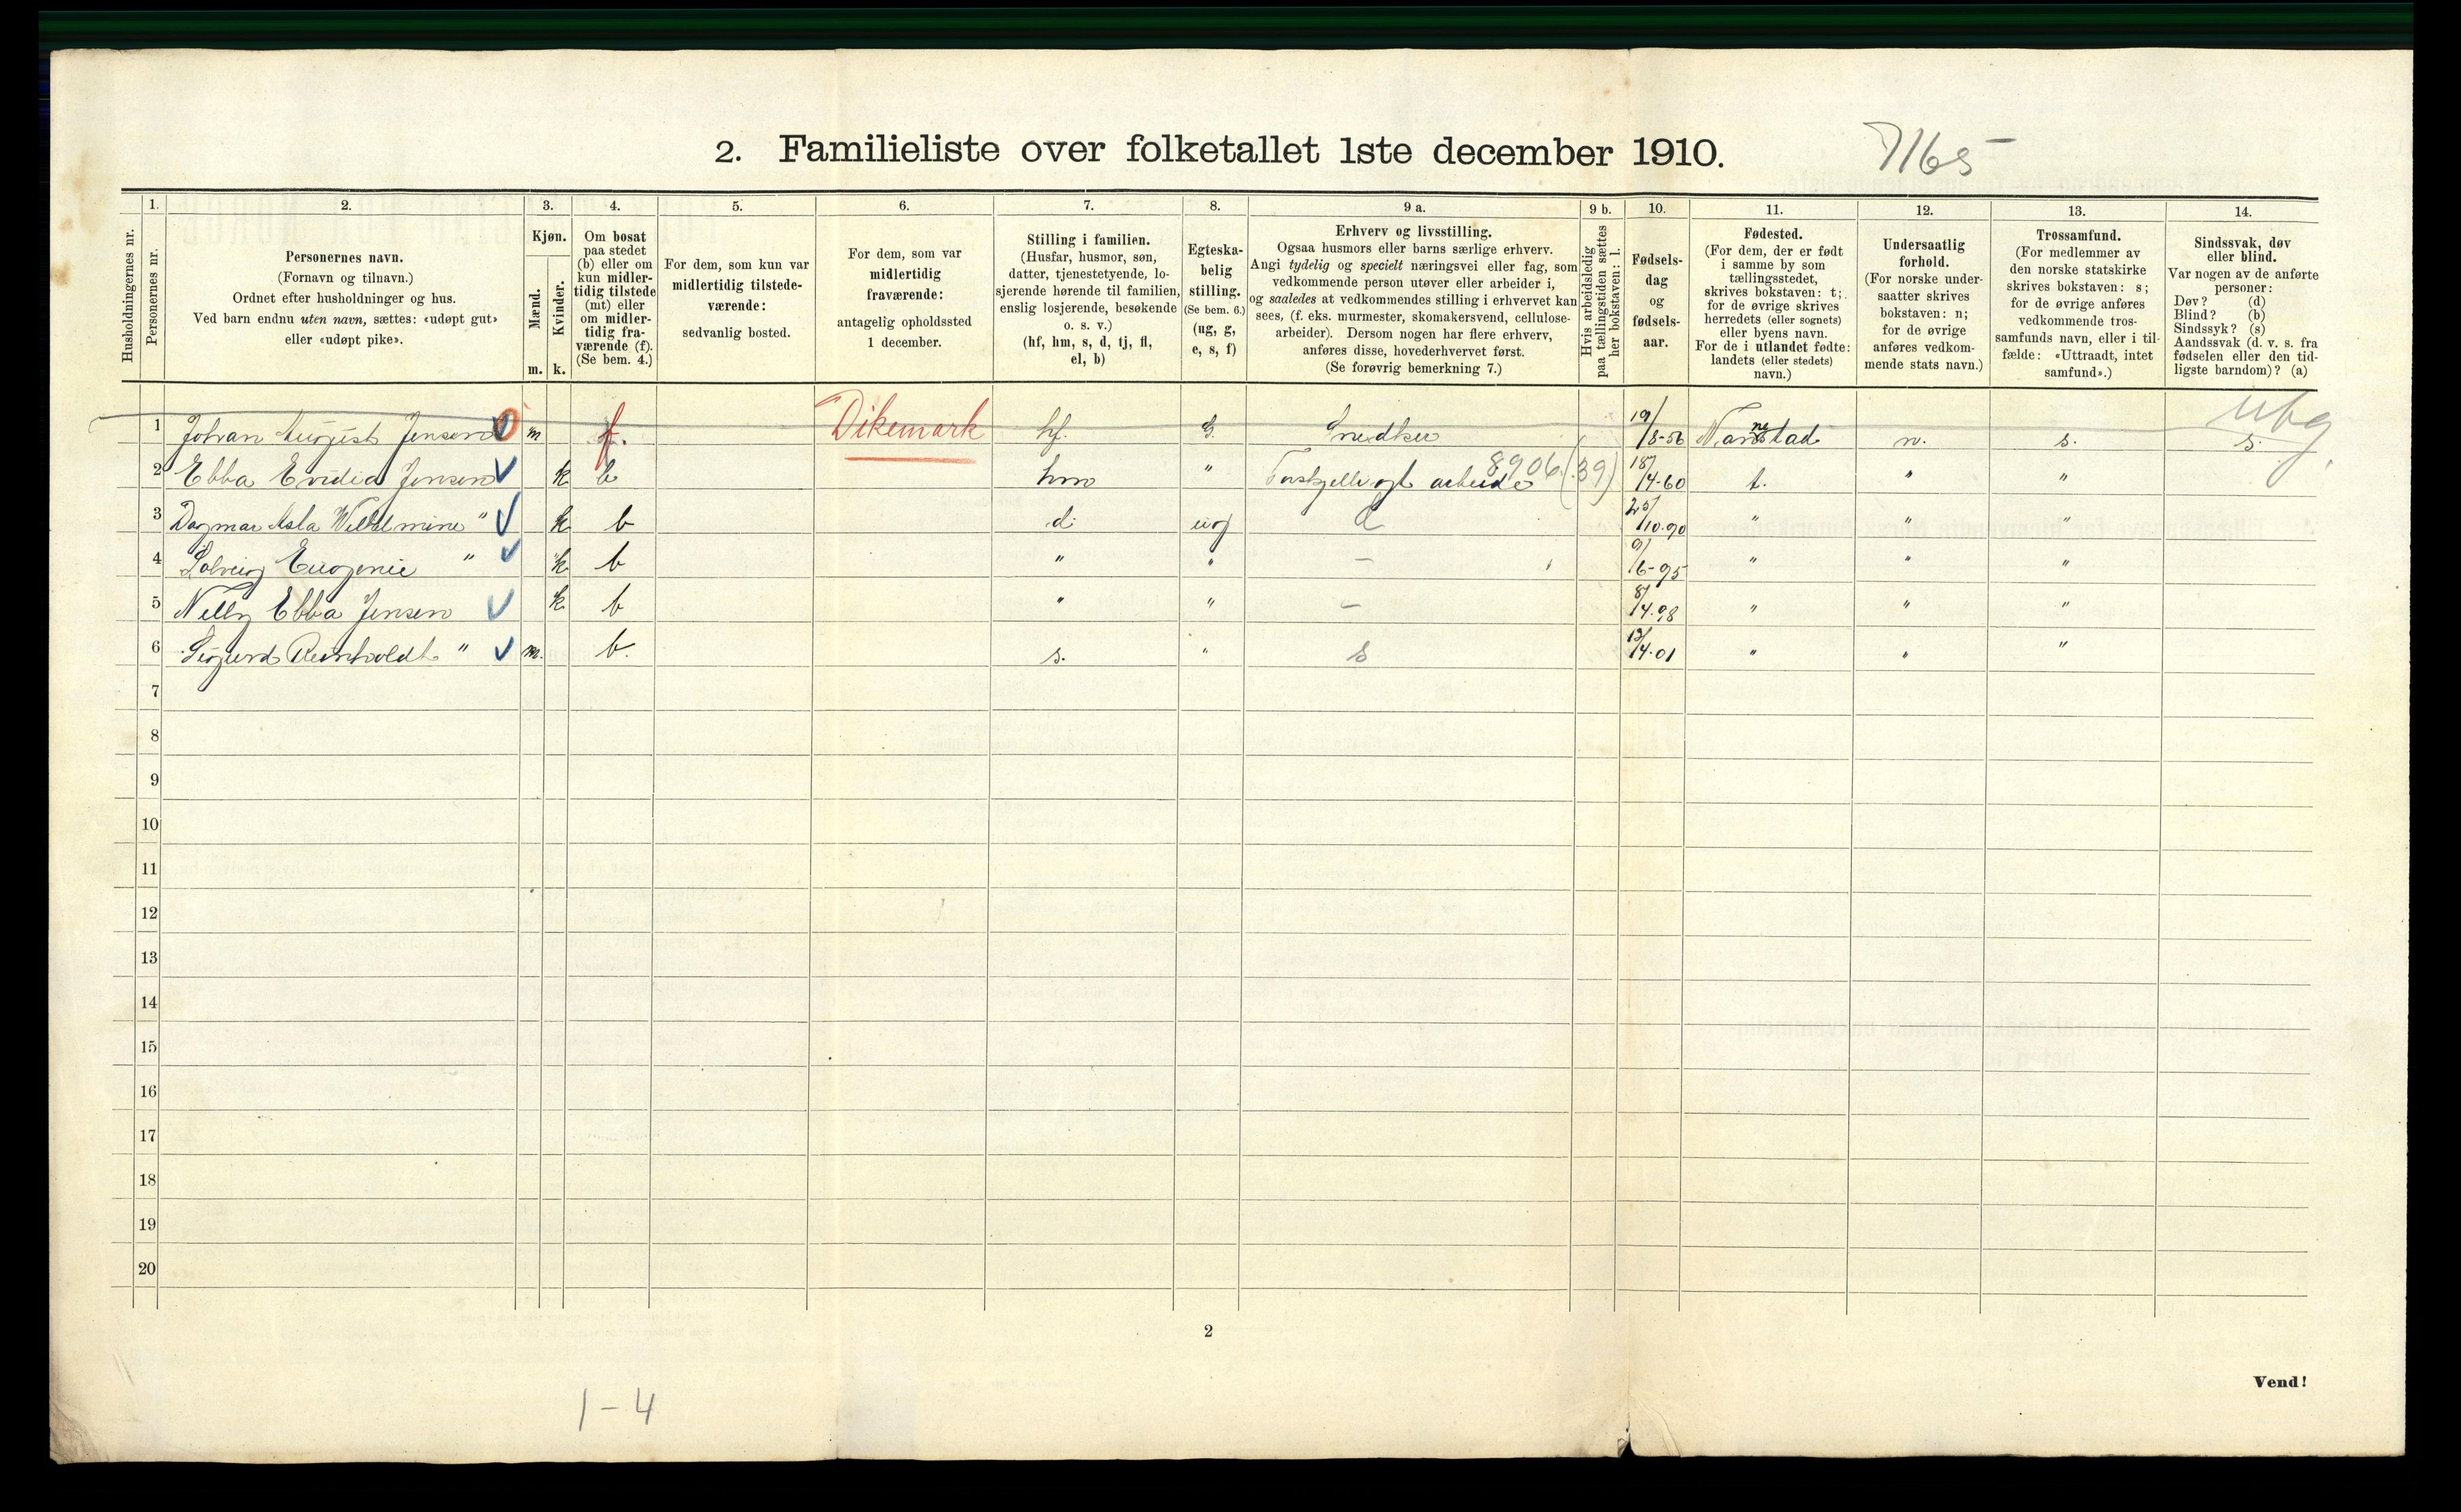 2. Familieliste over folketallet 1ste december 1910.
7165
Husholdningernes nr.
1.
Personernes nr.
2.
Personernes navn.
(Fornavn og tilnavn.)
Ordnet efter husholdninger og hus.
Ved barn endnu uten navn, sættes: «udøpt gut»
eller «udøpt pike».
3.
Kjøn.
Mænd.
Kvinder.
m. k.
4.
Om bosat
paa stedet
(b) eller om
kun midler-
tidig tilstede
(mt) eller
om midler-
tidig fra-
værende (f).
(Se bem. 4.)
5.
For dem, som kun var
midlertidig tilstede-
værende:
sedvanlig bosted.
6.
For dem, som var
midlertidig
fraværende:
antagelig opholdssted
1 december.
7.
Stilling i familien.
(Husfar, husmor, søn,
datter, tjenestetyende, lo-
sjerende hørende til familien,
enslig losjerende, besøkende
o. s. v.)
(hf, hm, s, d, tj, fl,
el, b)
8.
Egteska-
belig
stilling.
(Se bem. 6.)
(ug, g,
e, s, f)
9 a.
Erhverv og livsstilling.
Ogsaa husmors eller barns særlige erhverv.
Angi tydelig og specielt næringsvei eller fag, som
vedkommende person utøver eller arbeider i,
og saaledes at vedkommendes stilling i erhvervet kan
sees, (f. eks. murmester, skomakersvend, cellulose-
arbeider). Dersom nogen har flere erhverv,
anføres disse, hovederhvervet først.
(Se forøvrig bemerkning 7.)
9 b.
Hvis arbeidsledig
paa tællingstiden sættes
her bokstaven: l.
10.
Fødsels-
dag
og
fødsels-
aar.
11.
Fødested.
(For dem, der er født
i samme by som
tællingsstedet,
skrives bokstaven: t;
for de øvrige skrives
herredets (eller sognets)
eller byens navn.
For de i utlandet fødte:
landets (eller stedets)
navn.)
12.
Undersaatlig
forhold.
(For norske under-
saatter skrives
bokstaven: n;
for de øvrige
anføres vedkom-
mende stats navn.)
13.
Trossamfund.
(For medlemmer av
den norske statskirke
skrives bokstaven: s;
for de øvrige anføres
vedkommende tros-
samfunds navn, eller i til-
fælde: «Uttraadt, intet
samfund».)
14.
Sindssvak, døv
eller blind.
Var nogen av de anførte
personer:
Døv? (d)
Blind? (b)
Sindssyk? (s)
Aandssvak (d. v. s. fra
fødselen eller den tid-
ligste barndom)? (a)
ubg.
1 Johan August Jensen m f. Dikemark hf. g. Snedker 19/8-56 n. s. s.
2 Ebba Jensen k b hm " Forskjelligt arbeide 8906 (39) 18/4-60 t. " "
3 Dagmar Asla Wilhelmine " k b d. ug d 25/10.90 " " "
4 Solveig Eugenie " k b " " – 9/6-95 " " "
5 Nelly Ebba Jensen k b " " – 8/4.98 " " "
6 Sigurd Reinholdt " m. b. s. " s 13/4.01 " " "
7
8
9
10
11
12
13
14
15
16
17
18
19
20
2
Vend!
1-4